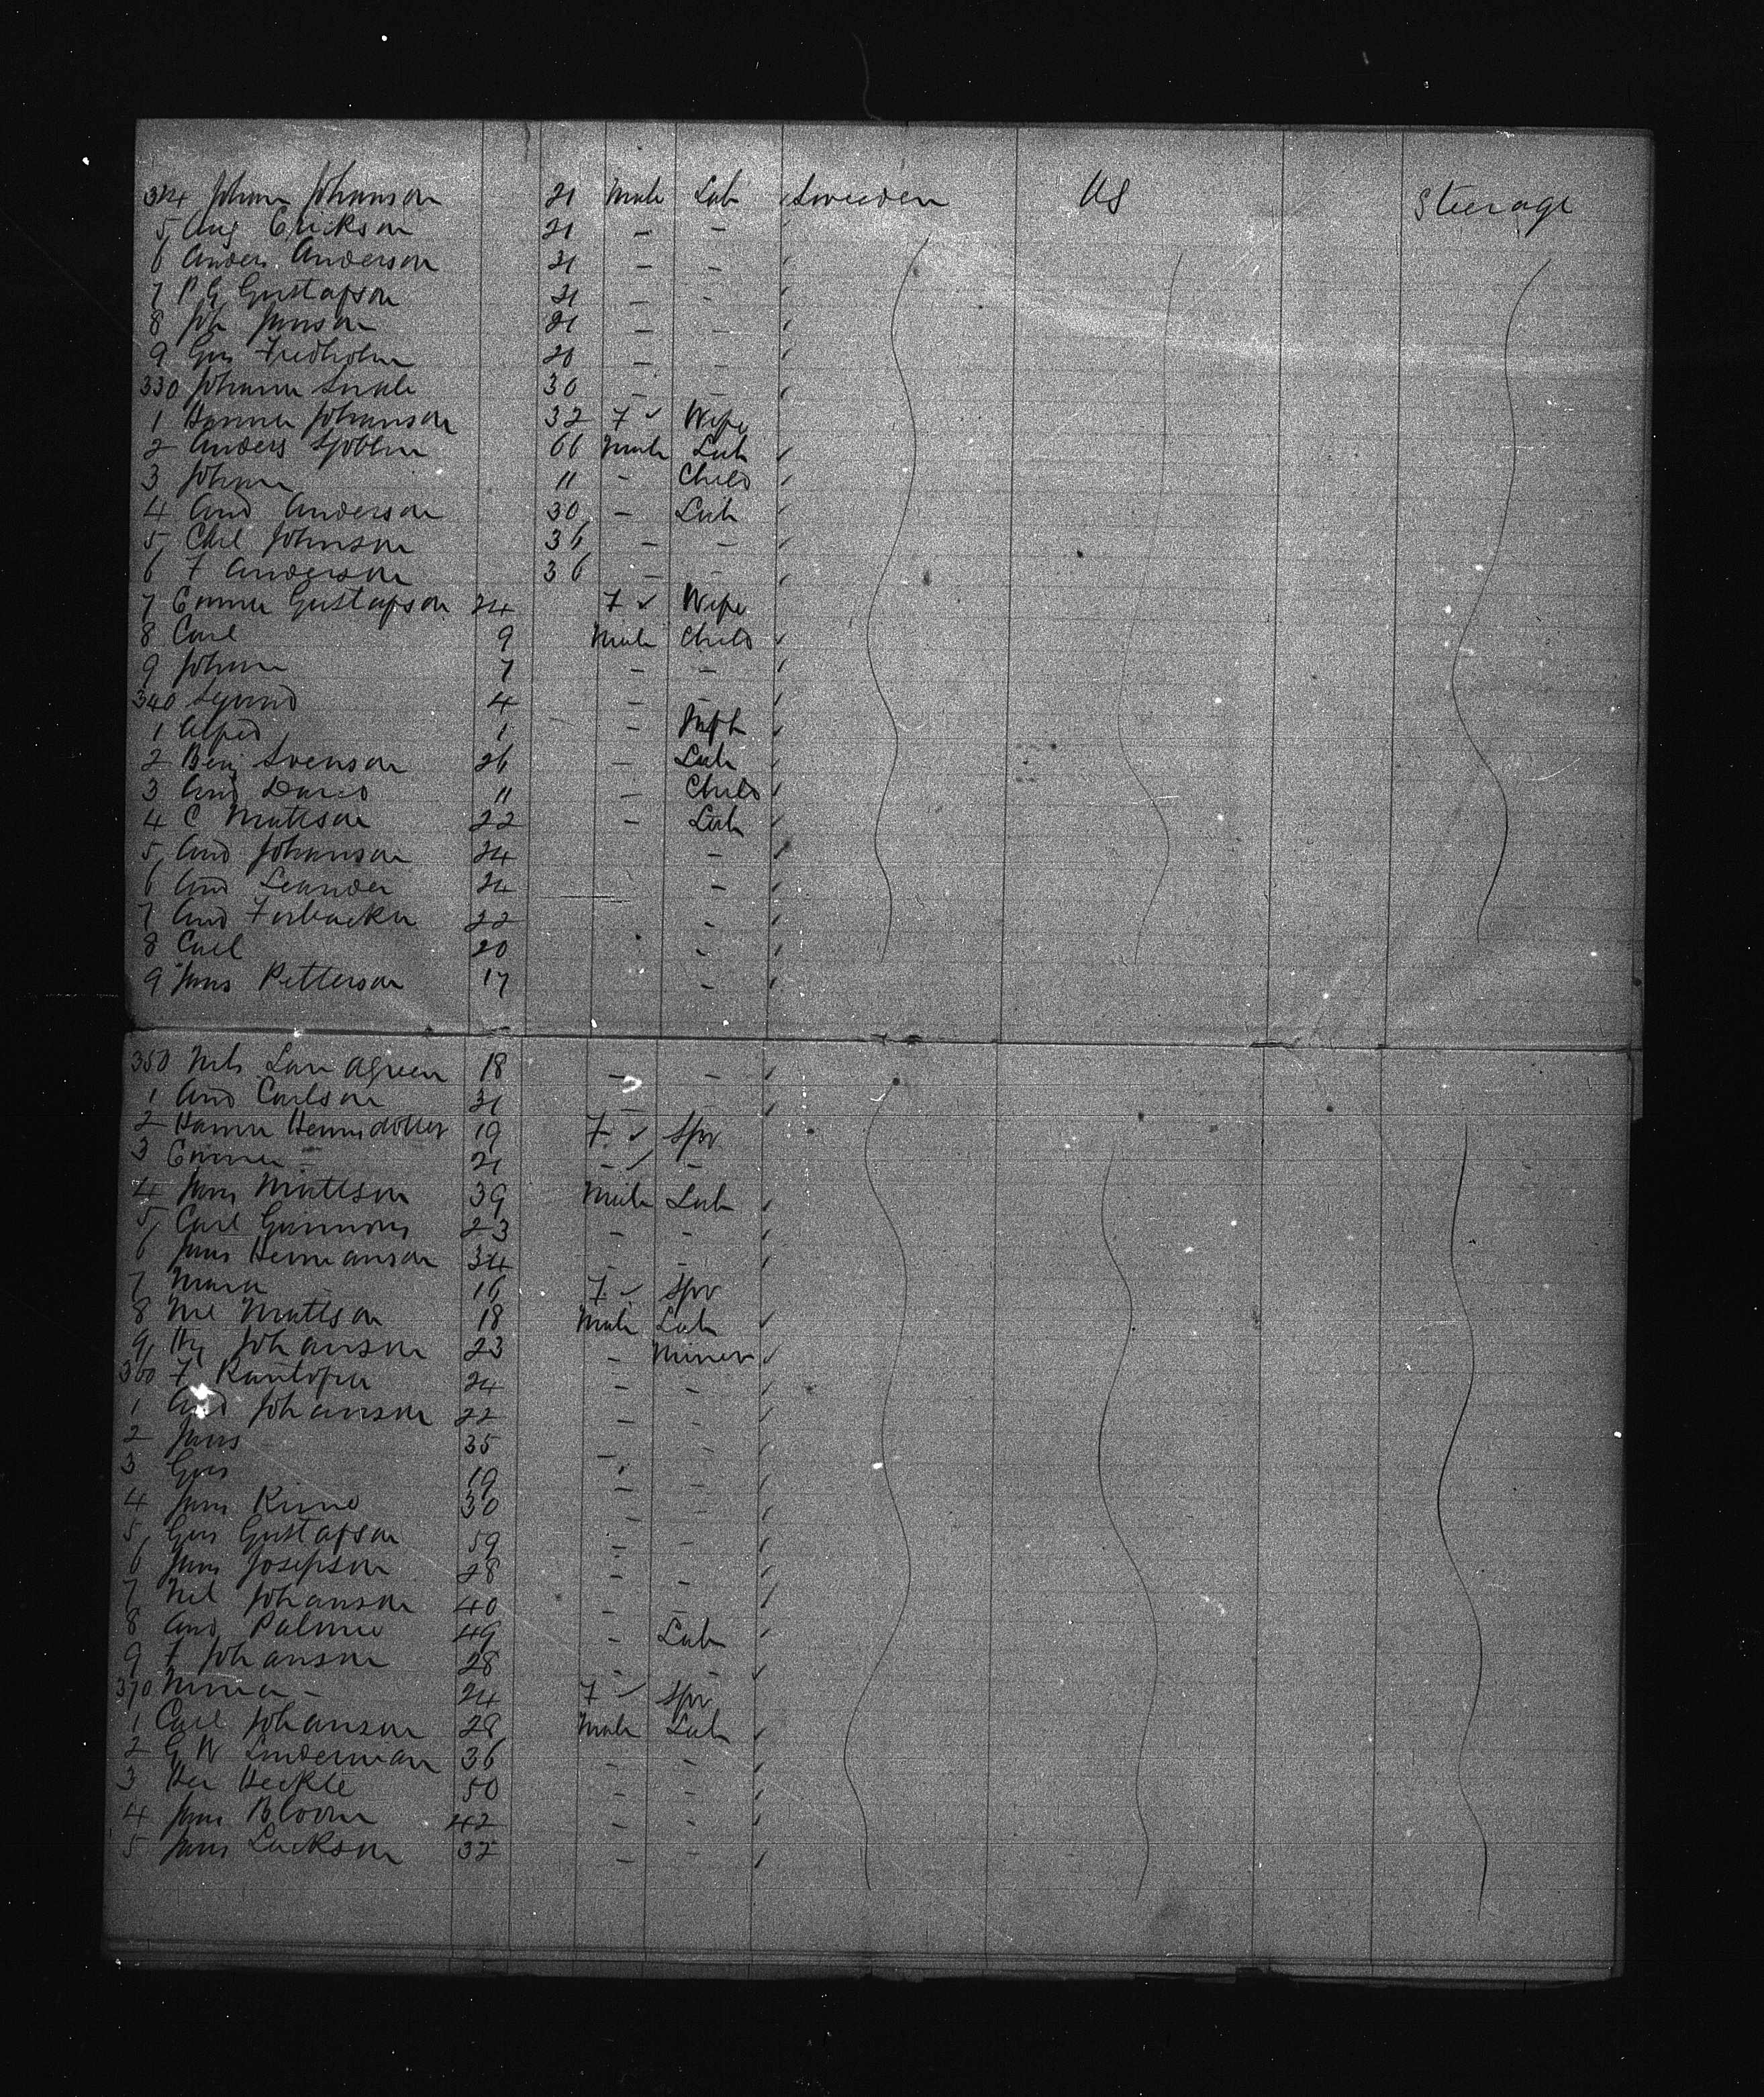 324 Johan Johanson 21 Male Lab Sweden US Steerage
5 Aug Erickson 21 - -
6 Anders Anderson 21 - -
7 P G Gustafson 21 - -
8 Joh Jonson 21 - -
9 Gus Fredholm 20 - -
330 Johann 30 - -
1 Hanna Johanson 32 F Wife
2 Anders Sjoblm 66 Male Lab
3 Johan 11 - Child
4 And Anderson 30 - Lab
5 Chl Johnson 36 - -
6 F Anderson 36 - -
7 Emma Gustafson 24 F Wife
8 Carl 9 Male Child
9 Johan 7 - -
340 4 - -
1 Alfred 1 - Inft
2 Benj Svenson 26 - Lab
3 And 11 - Child
4 C Mateson 22 - Lab
5 And Johanson 24 -
6 And Leander 24 -
7 And 22 -
8 Carl 20 -
9 Jans Petterson 17 -
350 Nels 18 - -
1 And Carlson 31 -
2 Hanna 19 F Spr
3 Emma - 21 - -
4 Jans Mattson 39 Male Lab
5 Carl 23 - -
6 Jans Hermanson 34 - -
7 Maria 16 F Spr
8 Nil Mattson 18 Male Lab
9 Hy Johanson 23 - Miner
360 F 24 - -
1 And Johanson 22 - -
2 Jans 35 - -
3 Gus 19 - -
4 Jans 30 - -
5 Gus Gustafson 59 - -
6 Jans Josepson 28 - -
7 Nil Johanson 40 - -
8 And 49 - Lab
9 F Johanson 28 - -
370 24 F Spr
1 Carl Johanson 28 Male Lab
2 G W Linderman 36 - -
3 50 - -
4 Jans Bloom 42 - -
5 Jans 32 - -